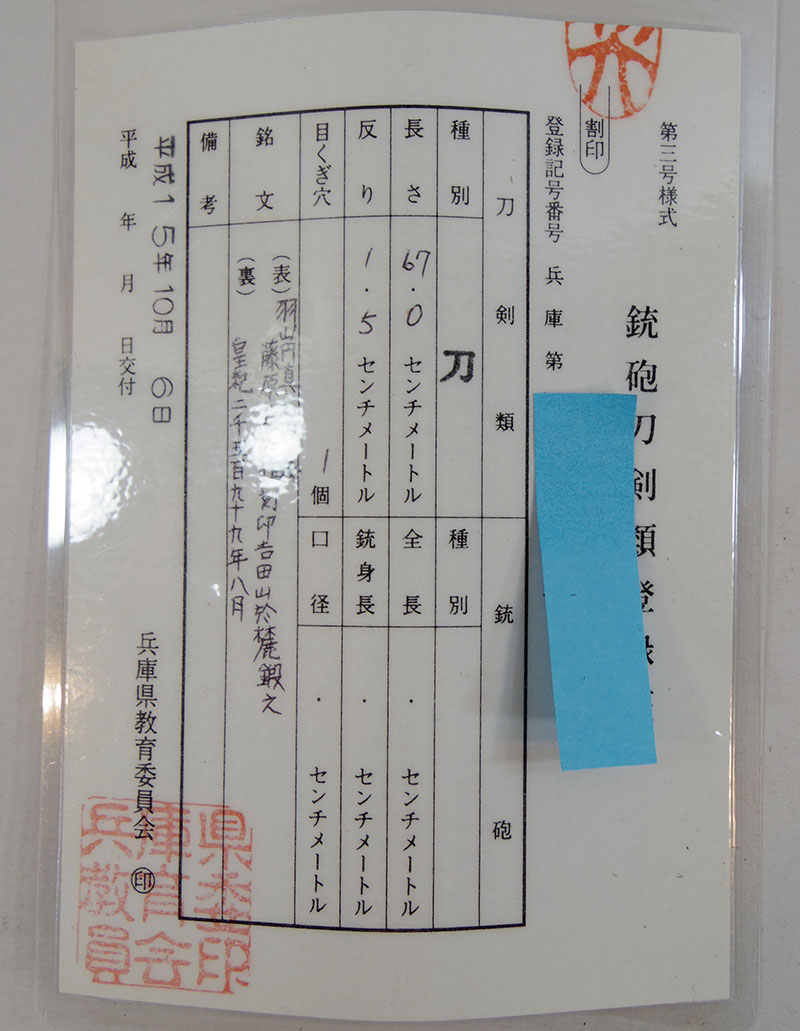 第三号様式
銃砲刀剣類登
割印
登録記号番号 兵庫第
刀剣類
銃砲
種別 刀
種別
長さ 67.0センチメートル
全長 ・ センチメートル
反り 1.5センチメートル
銃身長 ・ センチメートル
目くぎ穴 1個
口径 ・ センチメートル
銘文
(表)羽山円真
藤原 刻印吉田山於麓鍛之
(裏)皇紀二千五百九十九年八月
備考
平成15年10月6日
平成 年 月 日交付
兵庫県教育委員会 印
県委印
庫育会
兵教員